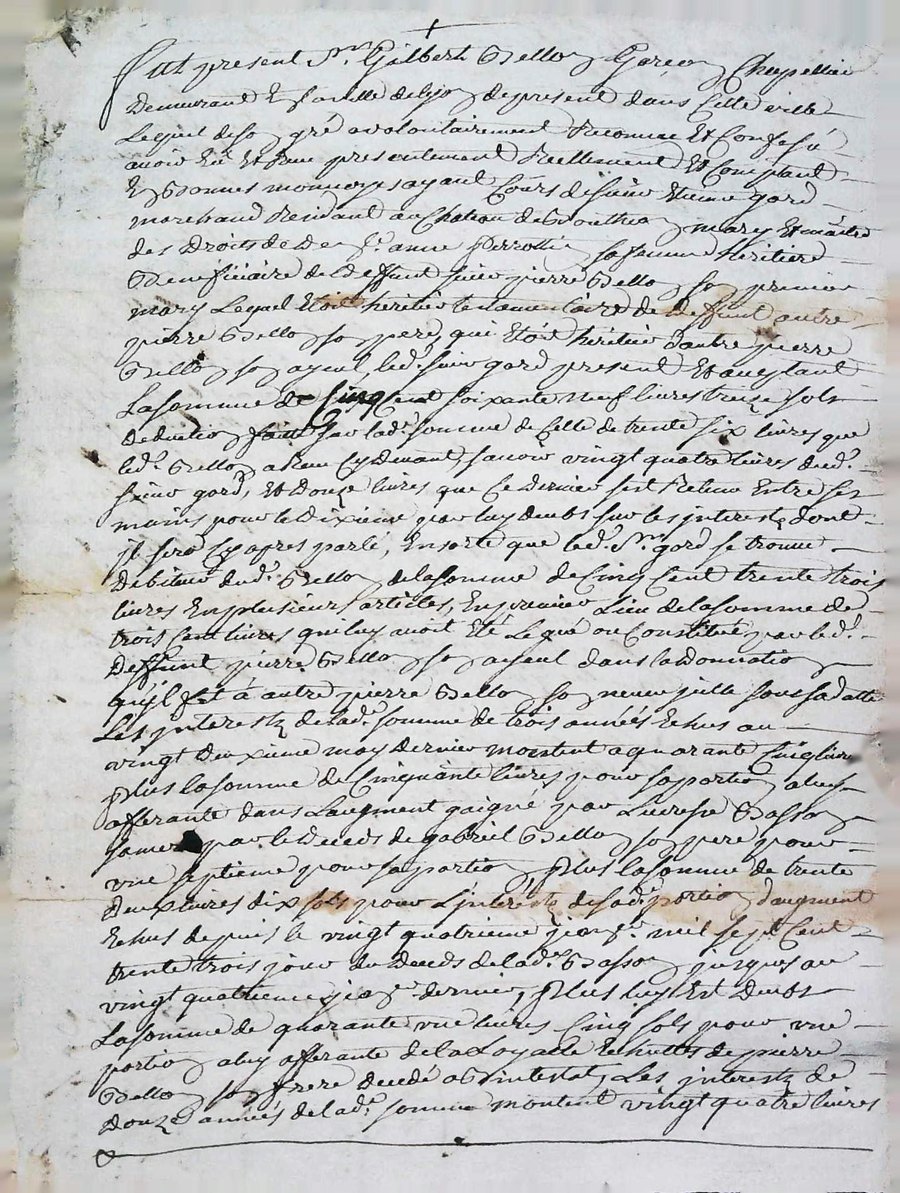 fut present Sr. Gilbert Bellon Garcon Chapellier
Demeurant En la ville de lyon de present dans Cette ville
Lequel de son gré a volontairement Reconnu Et Confessé
avoir Eu Et Receu presentement Reellement Et Comptant
En Bonnes monnoyes ayant Cours de sieur Etienne gord
marchand Residant au Chateau de mary Et maitre
des Droits de De anne Perrottin sa femme heritiere
Beneficiaire de Deffunt sieur pierre Bellon son premier
mary Lequel Etoit heritier testamentaire de Deffunt autre
pierre Bellon son pere, qui Etoit heritier d'autre pierre
Bellon son ayeul led. sieur gord present Et aceptant
La somme de Cinq Cent soixante neuf livres treize sols
Deduction faitte sur lad. somme de Celle de trente six livres que
led. Bellon a Receu Cy Devant, savoir vingt quatre livres dud.
sieur gord, Et Douze livres que Ce Dernier s'est Retenu Entre ses
mains pour le Dixieme par luy deubt sur les interests dont
jl sera Cy apres parlé, En sorte que led. Sr. gord se trouve
Debiteur dud. Bellon de la somme de Cinq Cent trente trois
livres En plusieurs articles, En premier Lieu de la somme de
trois Cent livres qui luy avoit Eté Legué ou Constitué par led.
Deffunt pierre Bellon son ayeul dans la donnation
qu'jl fit à autre pierre Bellon son neveu sous sa datte
Les jnterests de lad. somme de trois années Echus au
vingt Deuxieme may Dernier montent a quarante Cinq livres
Plus la somme de Cinquante livres pour sa portion a luy
afferante dans L'augment gaigné par Lucresse Basson
sa mere par le Deceds de gabriel Bellon son pere pour
une septieme pour sa portion, Plus la somme de trente
Deux livres dix sols pour L'interest de sad. portion d'augment
Echus depuis le vingt quatrieme janer. mil sept Cent
trente trois jour du Deceds de lad. Basson jusques au
vingt quatrieme janer dernier, Plus luy Est Deubt
La somme de quarante une livres Cinq sols pour une
portion a luy afferante de la Loyalle Echutte de pierre
Bellon son frere decedé ab intestat, Les jnterests de
Douze années de lad. somme montent vingt quatre livres